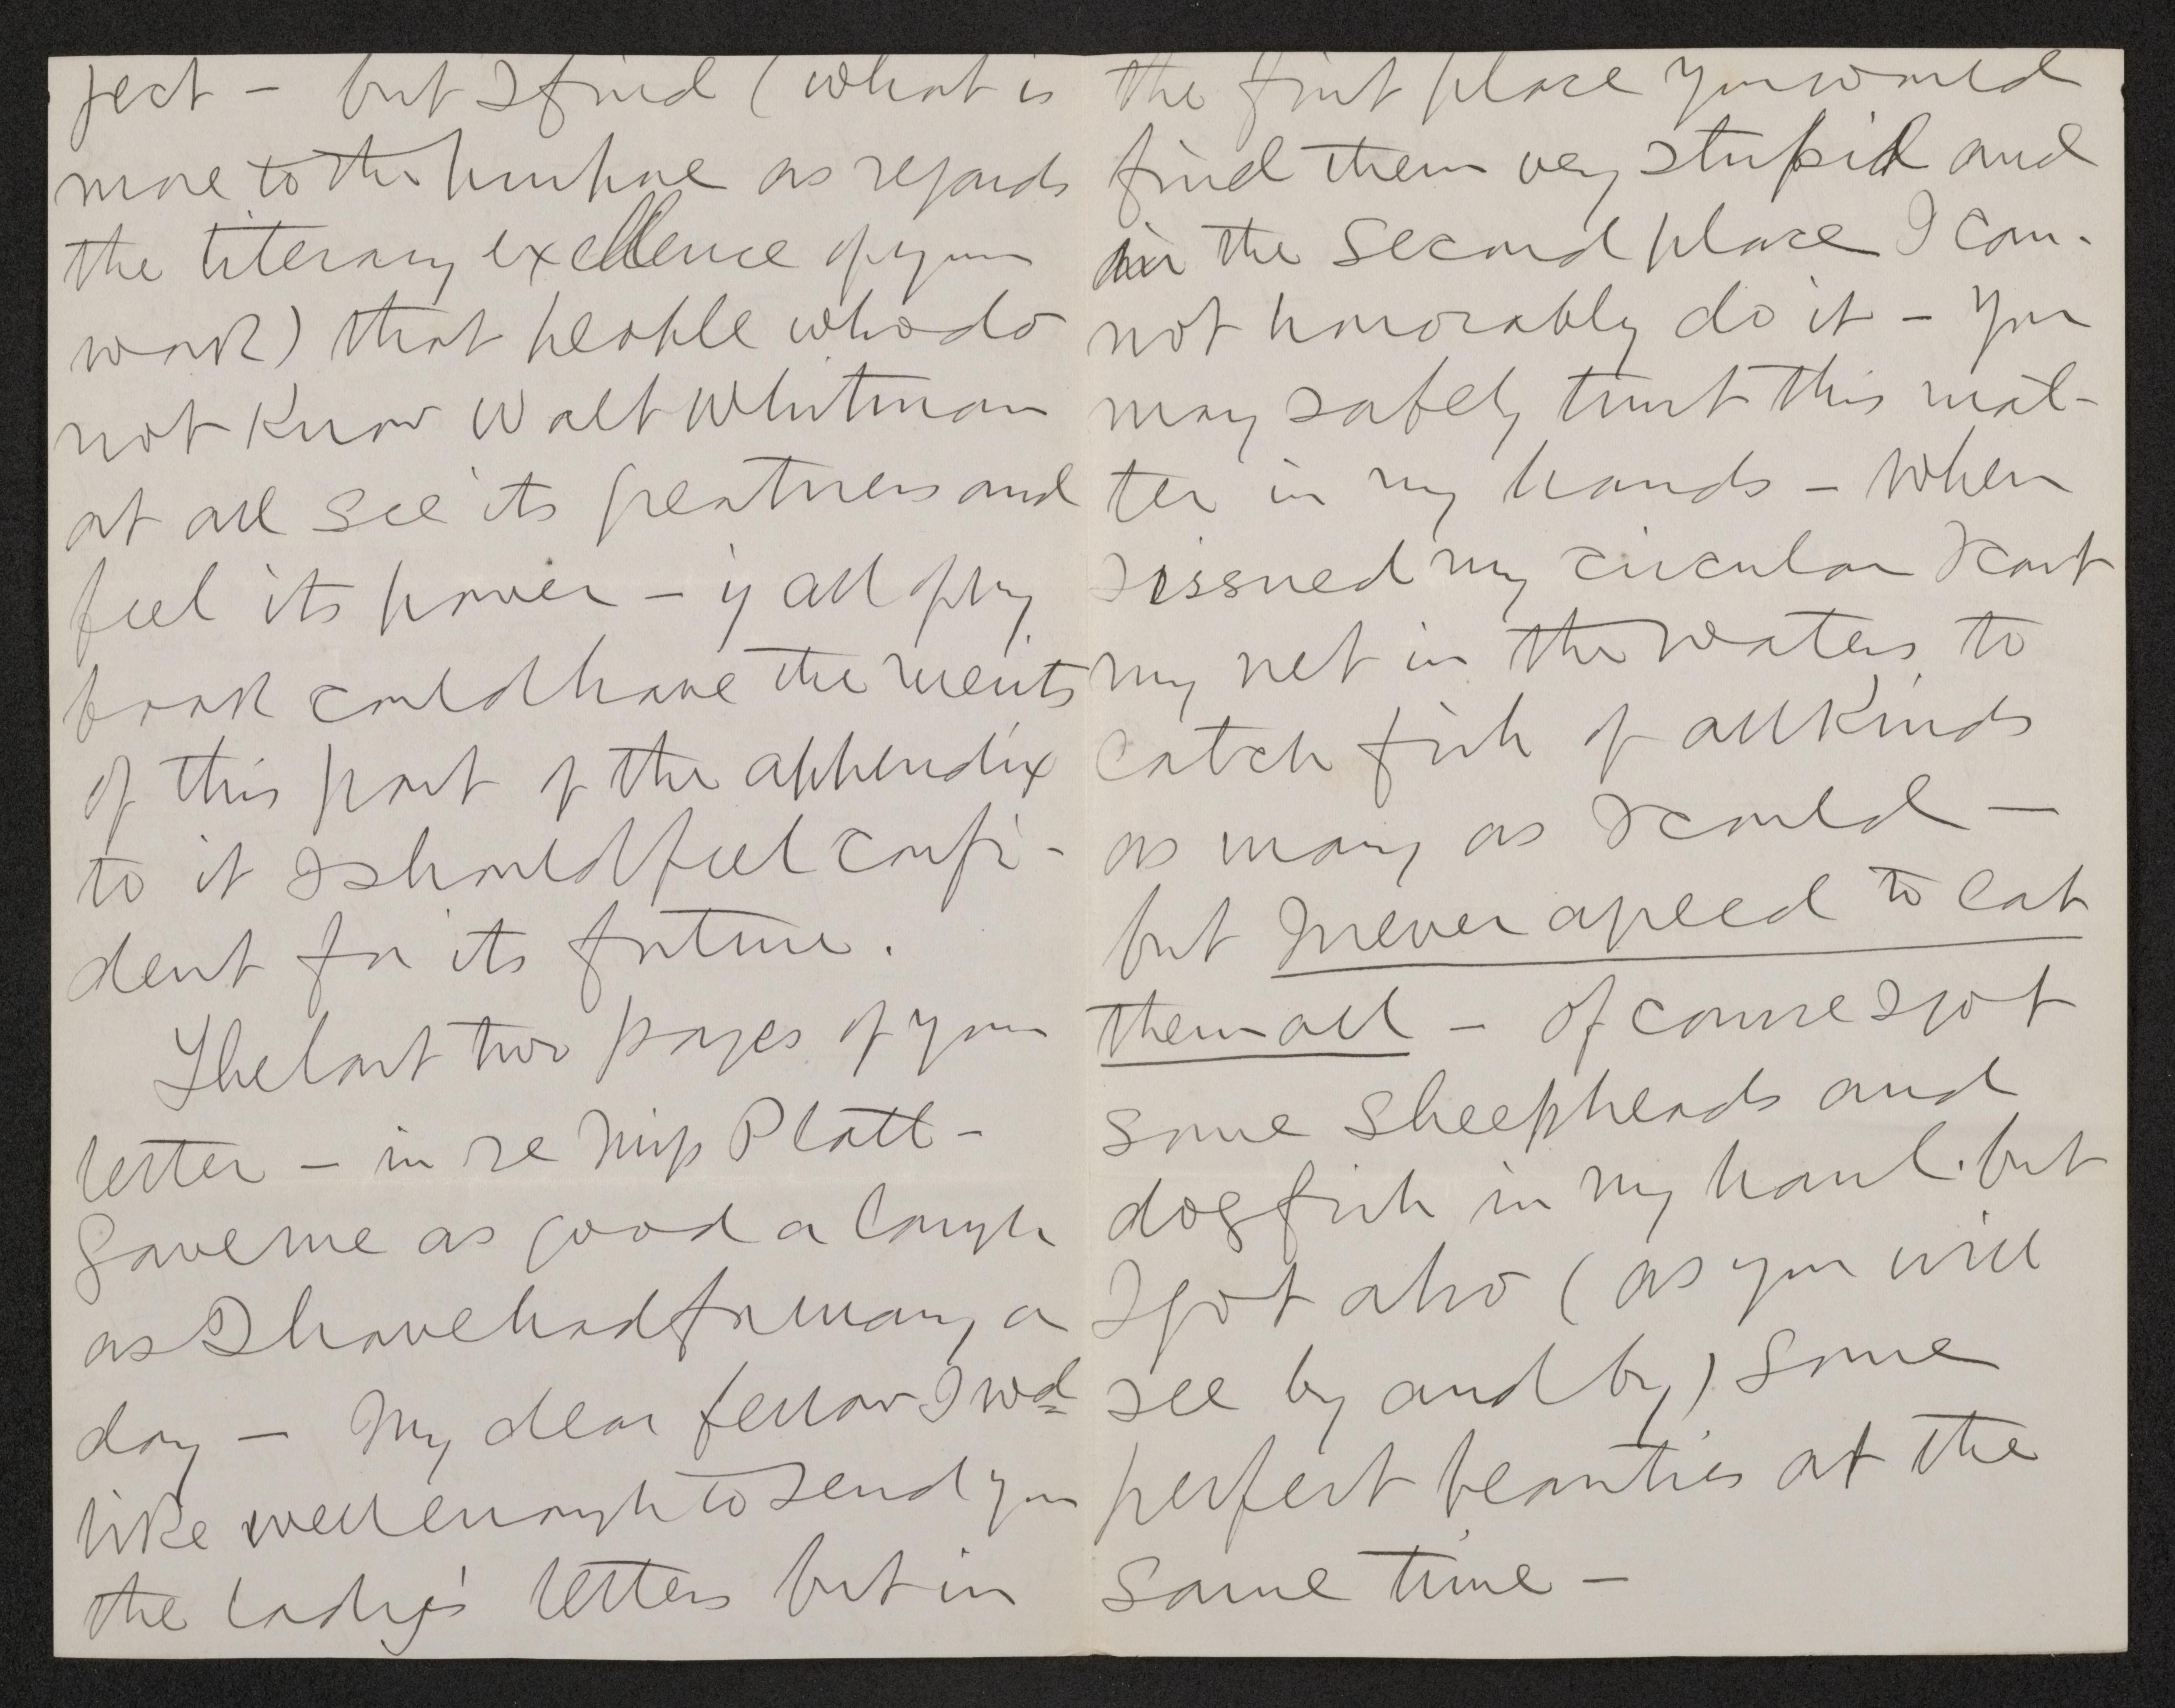 ject – but I find (what is
more to the purpose as regards
the literary excellence of your
work) that people who do
not know Walt Whitman
at all see its greatness and
feel its power – if all of my
book could have the merits
of this part of the appendix
to it I should feel confi-
dent for its future.
The last two pages of your
letter – in re Miss Platt –
gave me as good a laugh
as I have had for many a
day – My dear fellow I wd
like well enough to send you
the lady's letters but in
the first place you would
find them very stupid and
in the second place I can-
not honorably do it – You
may safely trust this mat-
ter in my hands – When
I issued my circular I cast
my net in the waters, to
catch fish of all kinds
as many as I could –
but I never agreed to eat
them all – of course I got
some sheepheads and
dogfish in my haul. but
I got also (as you will
see by and by) some
perfect beauties at the
same time –